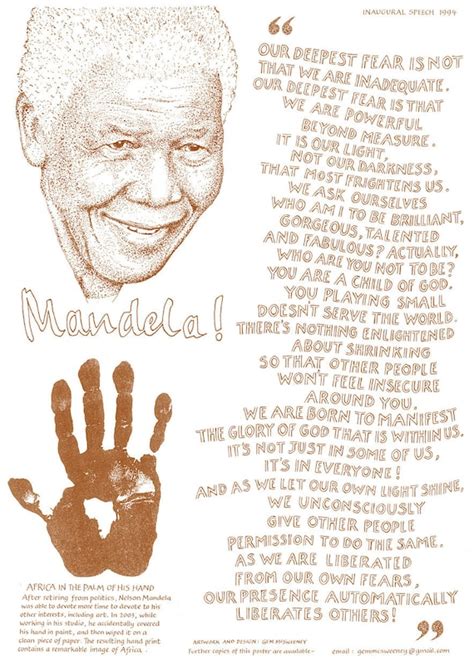 INAUGURAL SPEECH 1994
“
OUR DEEPEST FEAR IS NOT
THAT WE ARE INADEQUATE.
OUR DEEPEST FEAR IS THAT
WE ARE POWERFUL
BEYOND MEASURE.
IT IS OUR LIGHT,
NOT OUR DARKNESS,
THAT MOST FRIGHTENS US.
WE ASK OURSELVES
WHO AM I TO BE BRILLIANT,
GORGEOUS, TALENTED
AND FABULOUS? ACTUALLY,
WHO ARE YOU NOT TO BE?
YOU ARE A CHILD OF GOD.
YOU PLAYING SMALL
DOESN'T SERVE THE WORLD.
THERE'S NOTHING ENLIGHTENED
ABOUT SHRINKING
SO THAT OTHER PEOPLE
WON'T FEEL INSECURE
AROUND YOU.
WE ARE BORN TO MANIFEST
THE GLORY OF GOD THAT IS WITHIN US.
IT'S NOT JUST IN SOME OF US,
IT'S IN EVERYONE!
AND AS WE LET OUR OWN LIGHT SHINE,
WE UNCONSCIOUSLY
GIVE OTHER PEOPLE
PERMISSION TO DO THE SAME.
AS WE ARE LIBERATED
FROM OUR OWN FEARS,
OUR PRESENCE AUTOMATICALLY
LIBERATES OTHERS!
”
Mandela!
AFRICA IN THE PALM OF HIS HAND
After retiring from politics, Nelson Mandela
was able to devote more time to devote to his
other interests, including art. In 2003, while
working in his studio, he accidently covered
his hand in paint, and then wiped it on a
clean piece of paper. The resulting hand print
contains a remarkable image of Africa.
ARTWORK AND DESIGN: GEM McSWEENEY
further copies of this poster are available-
email: gemmcsweeney@gmail.com